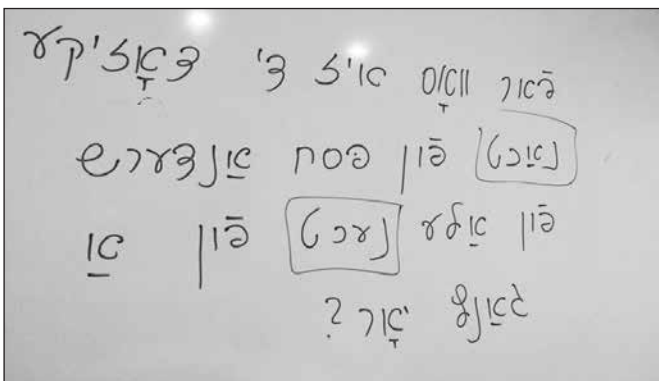 פֿאר וואָס איז די דאָזיקע
נאַכט פֿון פסח אַנדערש
פֿון אַלע נעכט פֿון אַ
גאַנץ יאָר?